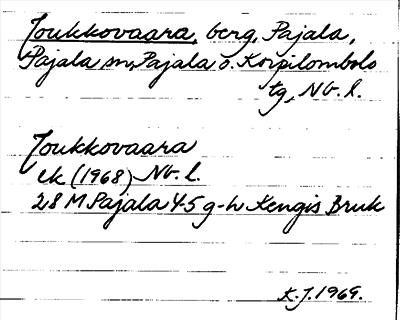 Joukkovaara, berg, Pajala,
Pajala sn, Pajala o. Korpilombolo
tg, Nb. l.
Joukkovaara
ek (1968) Nb. l.
28 M Pajala 45 g-h Kengis Bruk
K.J. 1969.